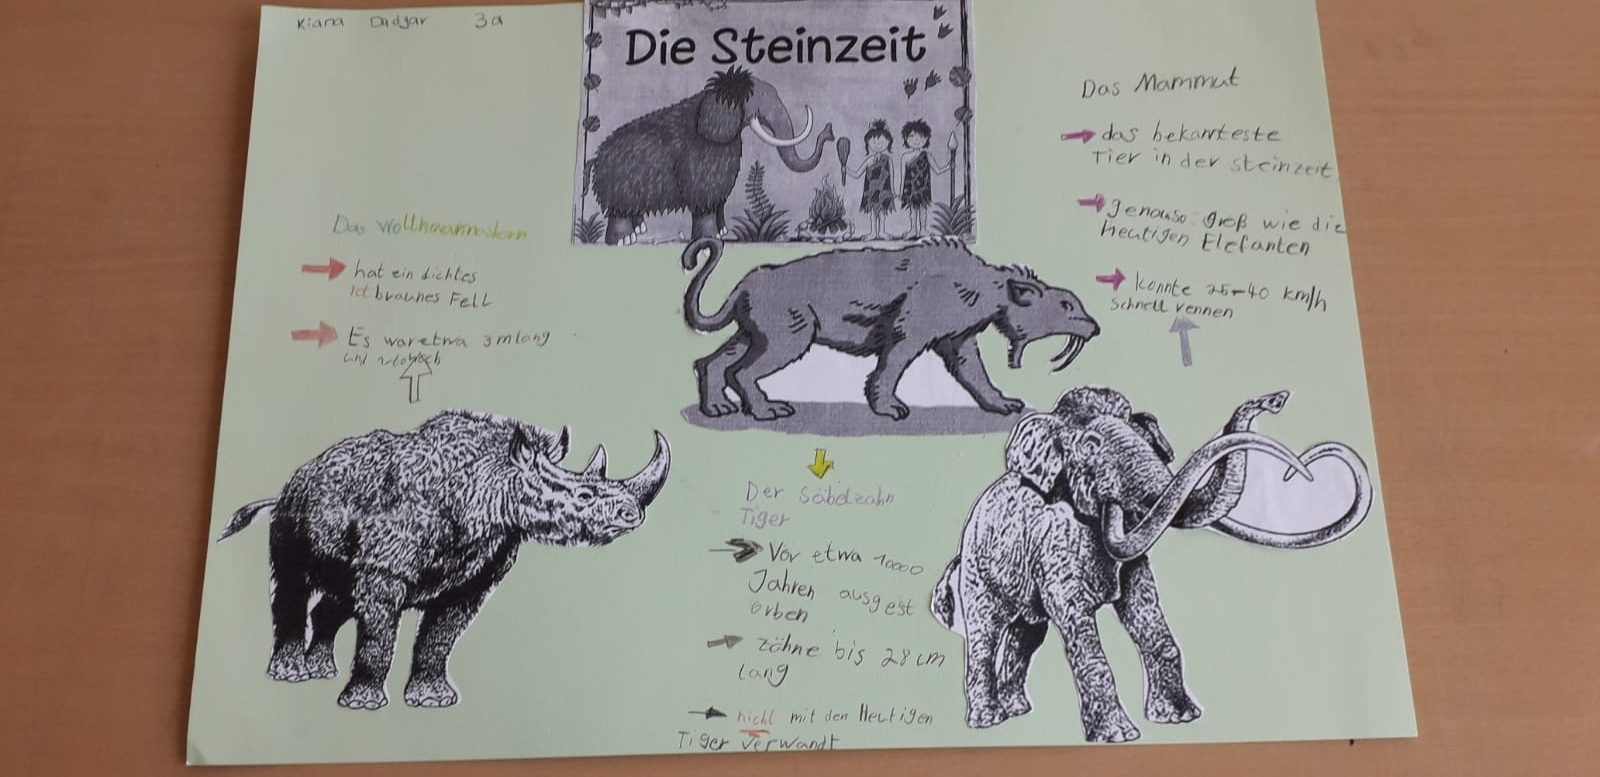 Kiana Dadgar 3a
Die Steinzeit
Das Wollhaarnashorn
hat ein dichtes
rotbraunes Fell
Es war etwa 3m lang
und
Das Mammut
das bekannteste
Tier in der Steinzeit
genauso groß wie die
heutigen Elefanten
konnte 25-40 km/h
schnell rennen
Der Säbelzahn
Tiger
Vor etwa 10000
Jahren ausgest
orben
Zähne bis 28 cm
Lang
nicht mit den Heutigen
Tiger Verwandt